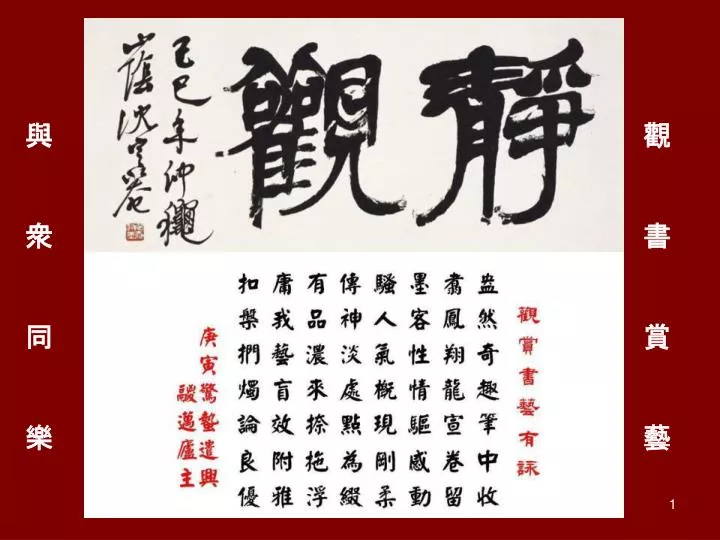 觀書賞藝
靜觀
己巳年仲龝
山陰沈定菴
觀賞書藝有詠
盎然奇趣筆中收
翥鳳翔龍宣卷留
墨客性情驅感動
騷人氣概現剛柔
傳神淡處點為綴
有品濃來捺拖浮
庸我藝盲效附雅
扣槃捫燭論良優
庚寅驚蟄遣興
駿邁廬主
與衆同樂
1